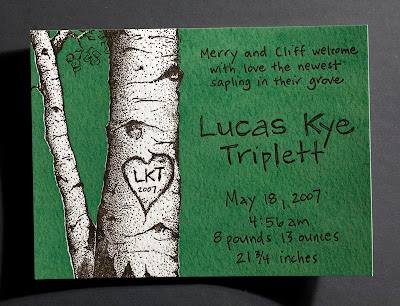 Merry and Cliff welcome
with love the newest
sapling in their grove
Lucas Kye
Triplett
May 18, 2007
4:56 am
8 pounds 13 ounces
21 3/4 inches
LKT
2007